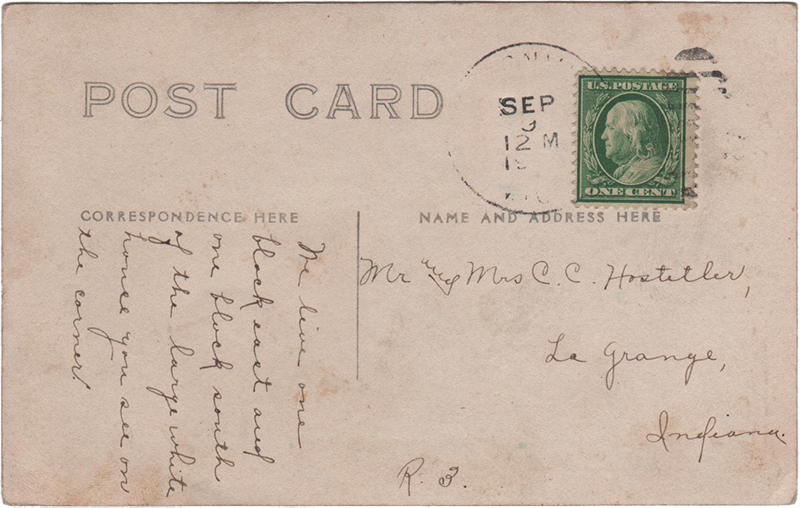 POST CARD
SEP
9
12 M
U.S. POSTAGE
ONE CENT
CORRESPONDENCE HERE
NAME AND ADDRESS HERE
We live one
block east and
one block south
of the large white
house you see on
the corner!
Mr and Mrs C. C. Hostetler,
La Grange,
Indiana.
R. 3.